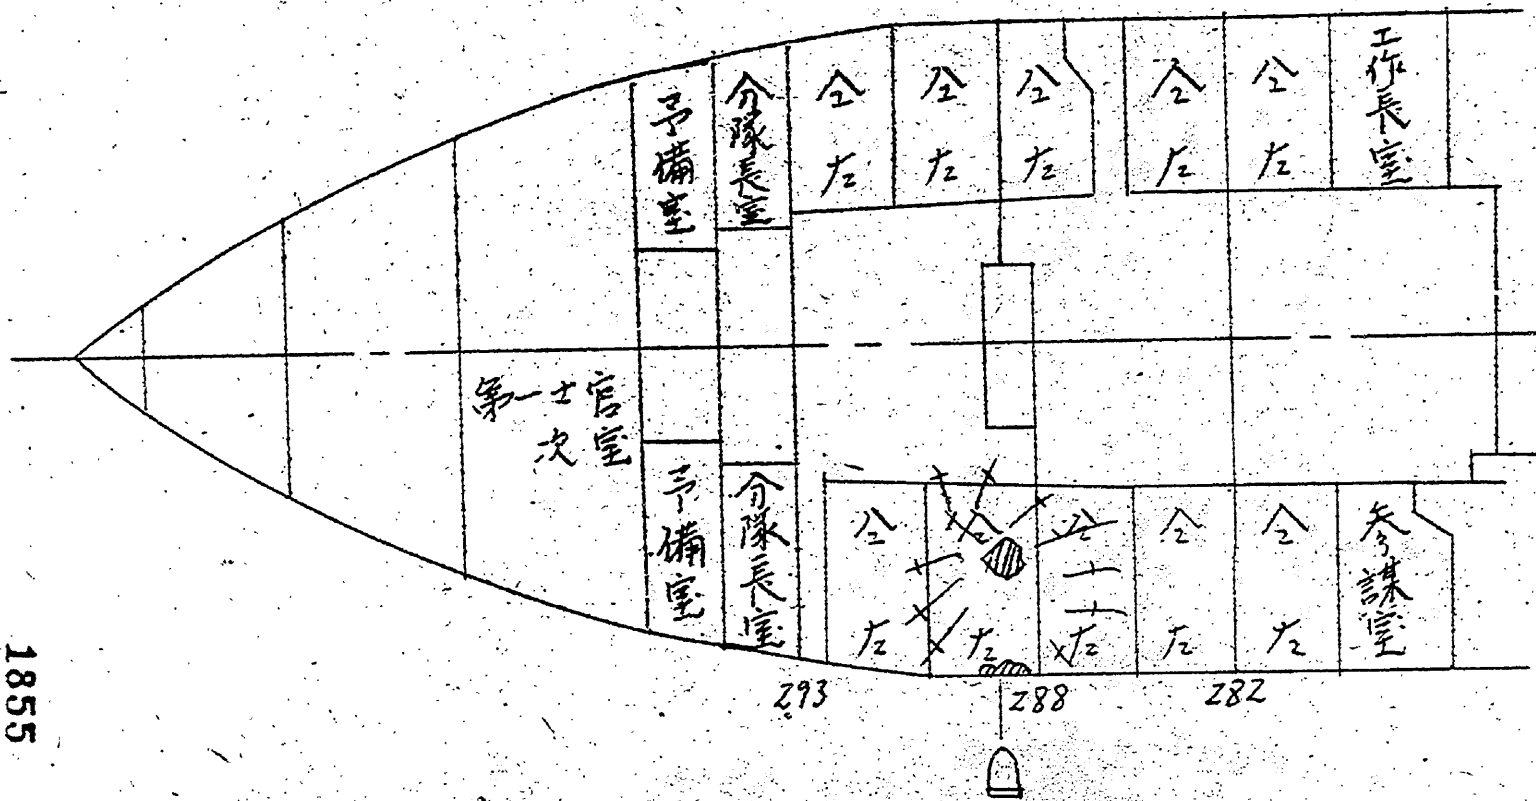 予備室
分隊長室
仝左
仝左
仝左
仝左
仝左
工作長室
第一士官
次室
予備室
分隊長室
仝左
仝左
仝左
仝左
仝左
参謀室
293
288
282
1855